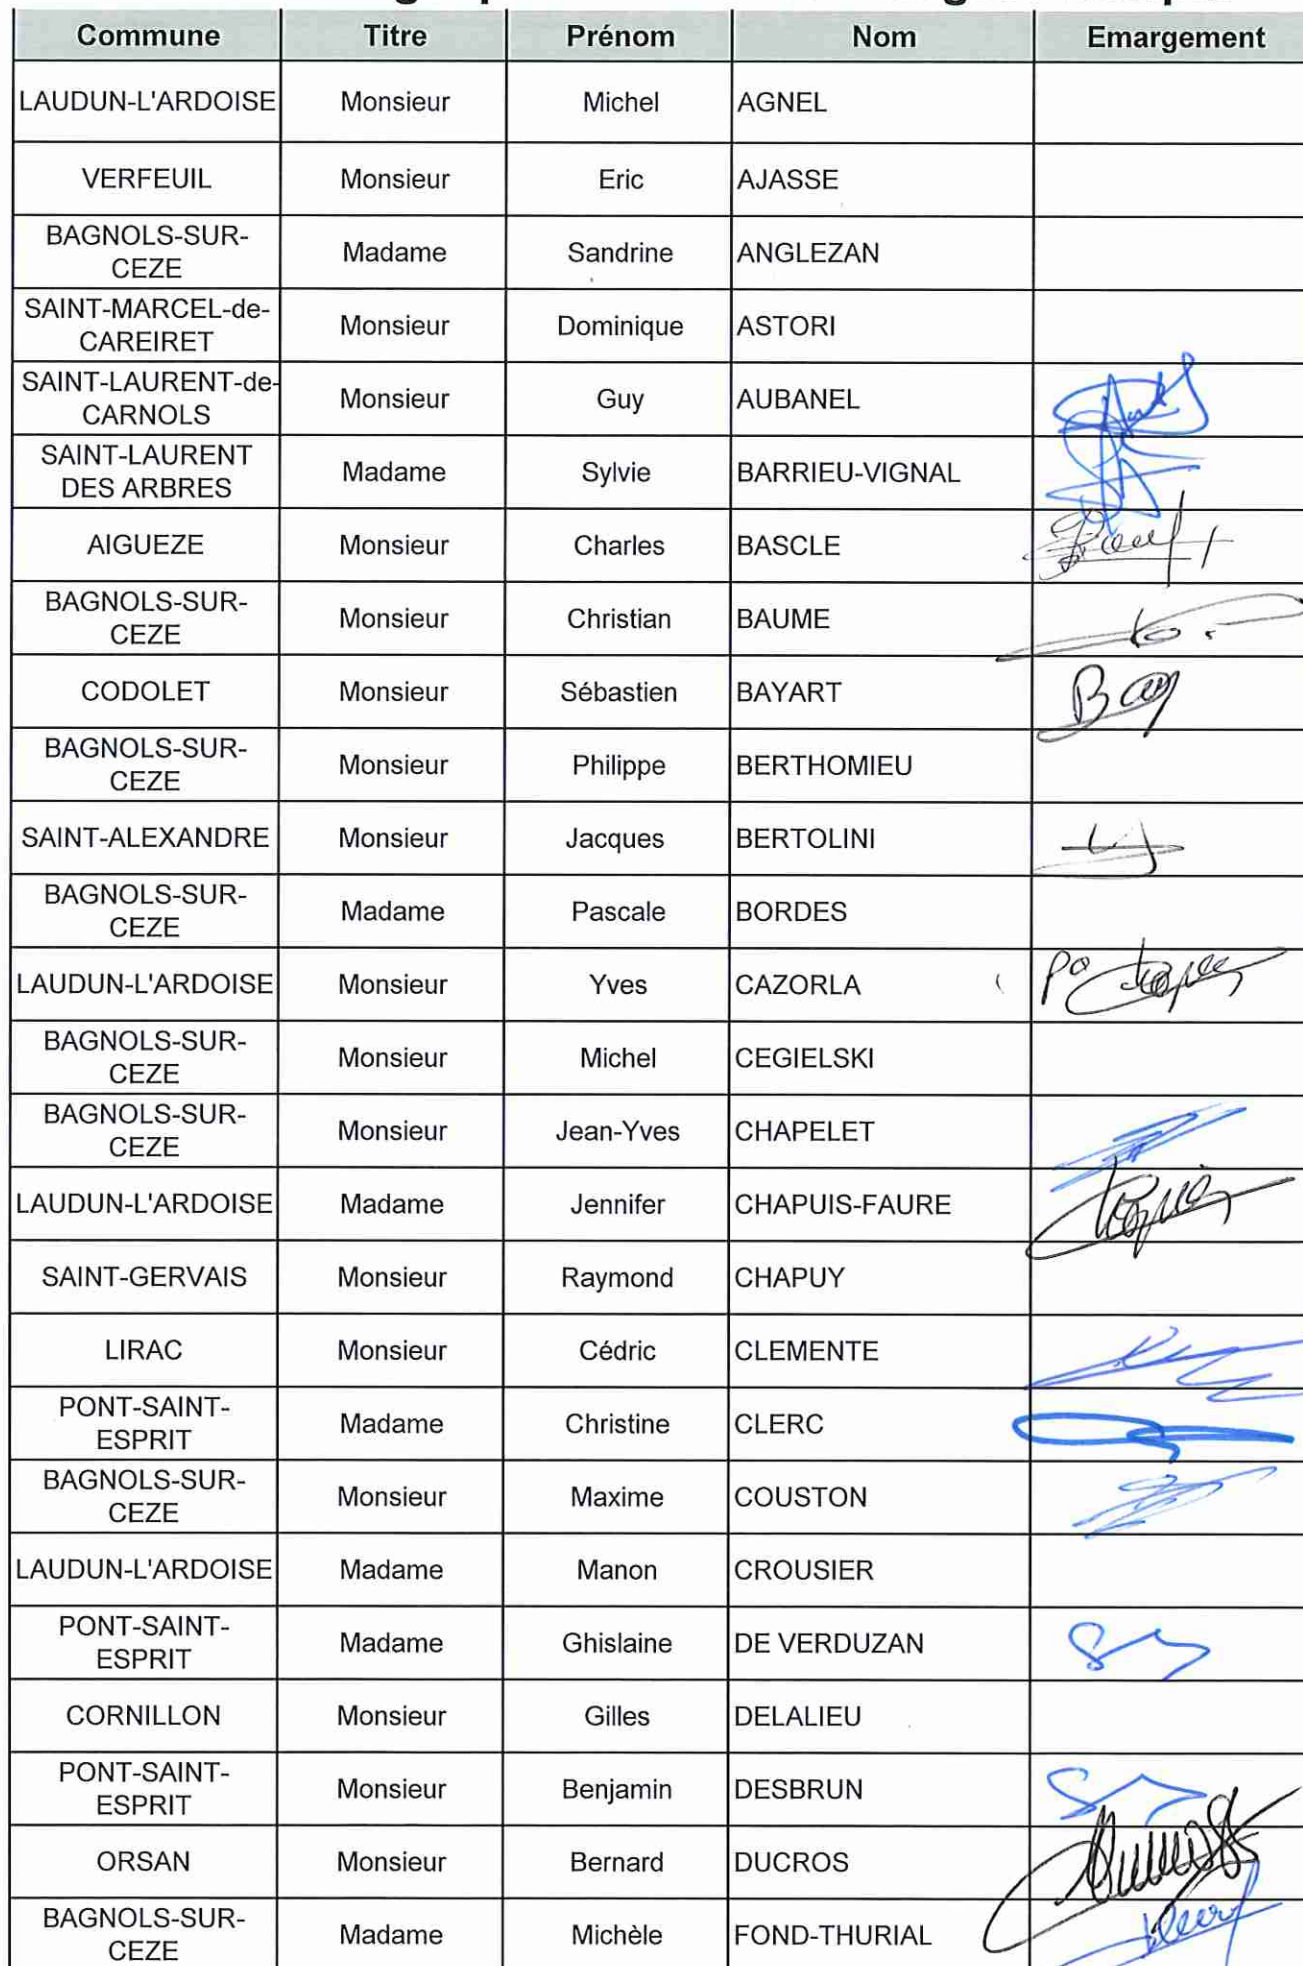 Commune Titre Prénom Nom Emargement
LAUDUN-L'ARDOISE Monsieur Michel AGNEL
VERFEUIL Monsieur Eric AJASSE
BAGNOLS-SUR-
CEZE Madame Sandrine ANGLEZAN
SAINT-MARCEL-de-
CAREIRET Monsieur Dominique ASTORI
SAINT-LAURENT-de-
CARNOLS Monsieur Guy AUBANEL
SAINT-LAURENT
DES ARBRES Madame Sylvie BARRIEU-VIGNAL
AIGUEZE Monsieur Charles BASCLE
BAGNOLS-SUR-
CEZE Monsieur Christian BAUME
CODOLET Monsieur Sébastien BAYART
BAGNOLS-SUR-
CEZE Monsieur Philippe BERTHOMIEU
SAINT-ALEXANDRE Monsieur Jacques BERTOLINI
BAGNOLS-SUR-
CEZE Madame Pascale BORDES
LAUDUN-L'ARDOISE Monsieur Yves CAZORLA
BAGNOLS-SUR-
CEZE Monsieur Michel CEGIELSKI
BAGNOLS-SUR-
CEZE Monsieur Jean-Yves CHAPELET
LAUDUN-L'ARDOISE Madame Jennifer CHAPUIS-FAURE
SAINT-GERVAIS Monsieur Raymond CHAPUY
LIRAC Monsieur Cédric CLEMENTE
PONT-SAINT-
ESPRIT Madame Christine CLERC
BAGNOLS-SUR-
CEZE Monsieur Maxime COUSTON
LAUDUN-L'ARDOISE Madame Manon CROUSIER
PONT-SAINT-
ESPRIT Madame Ghislaine DE VERDUZAN
CORNILLON Monsieur Gilles DELALIEU
PONT-SAINT-
ESPRIT Monsieur Benjamin DESBRUN
ORSAN Monsieur Bernard DUCROS
BAGNOLS-SUR-
CEZE Madame Michèle FOND-THURIAL